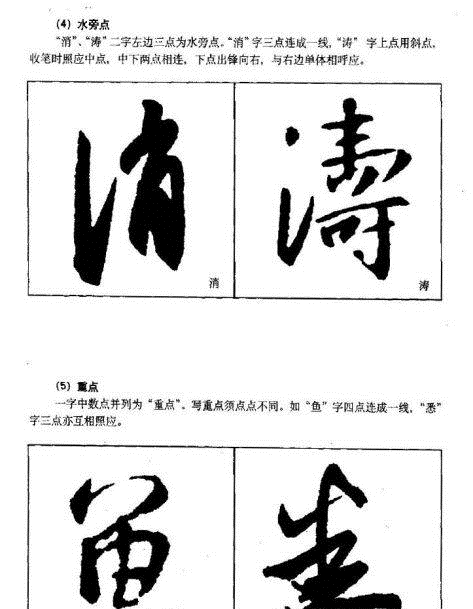 （4）水旁点
“消”、“涛”二字左边三点为水旁点。“消”字三点连成一线，“涛” 字上点用斜点，
收笔时照应中点，中下两点相连，下点出锋向右，与右边单体相呼应。
消 濤
消 涛
（5）重点
一字中数点并列为“重点”。写重点须点点不同。如“鱼”字四点连成一线，“悉”
字三点亦互相照应。